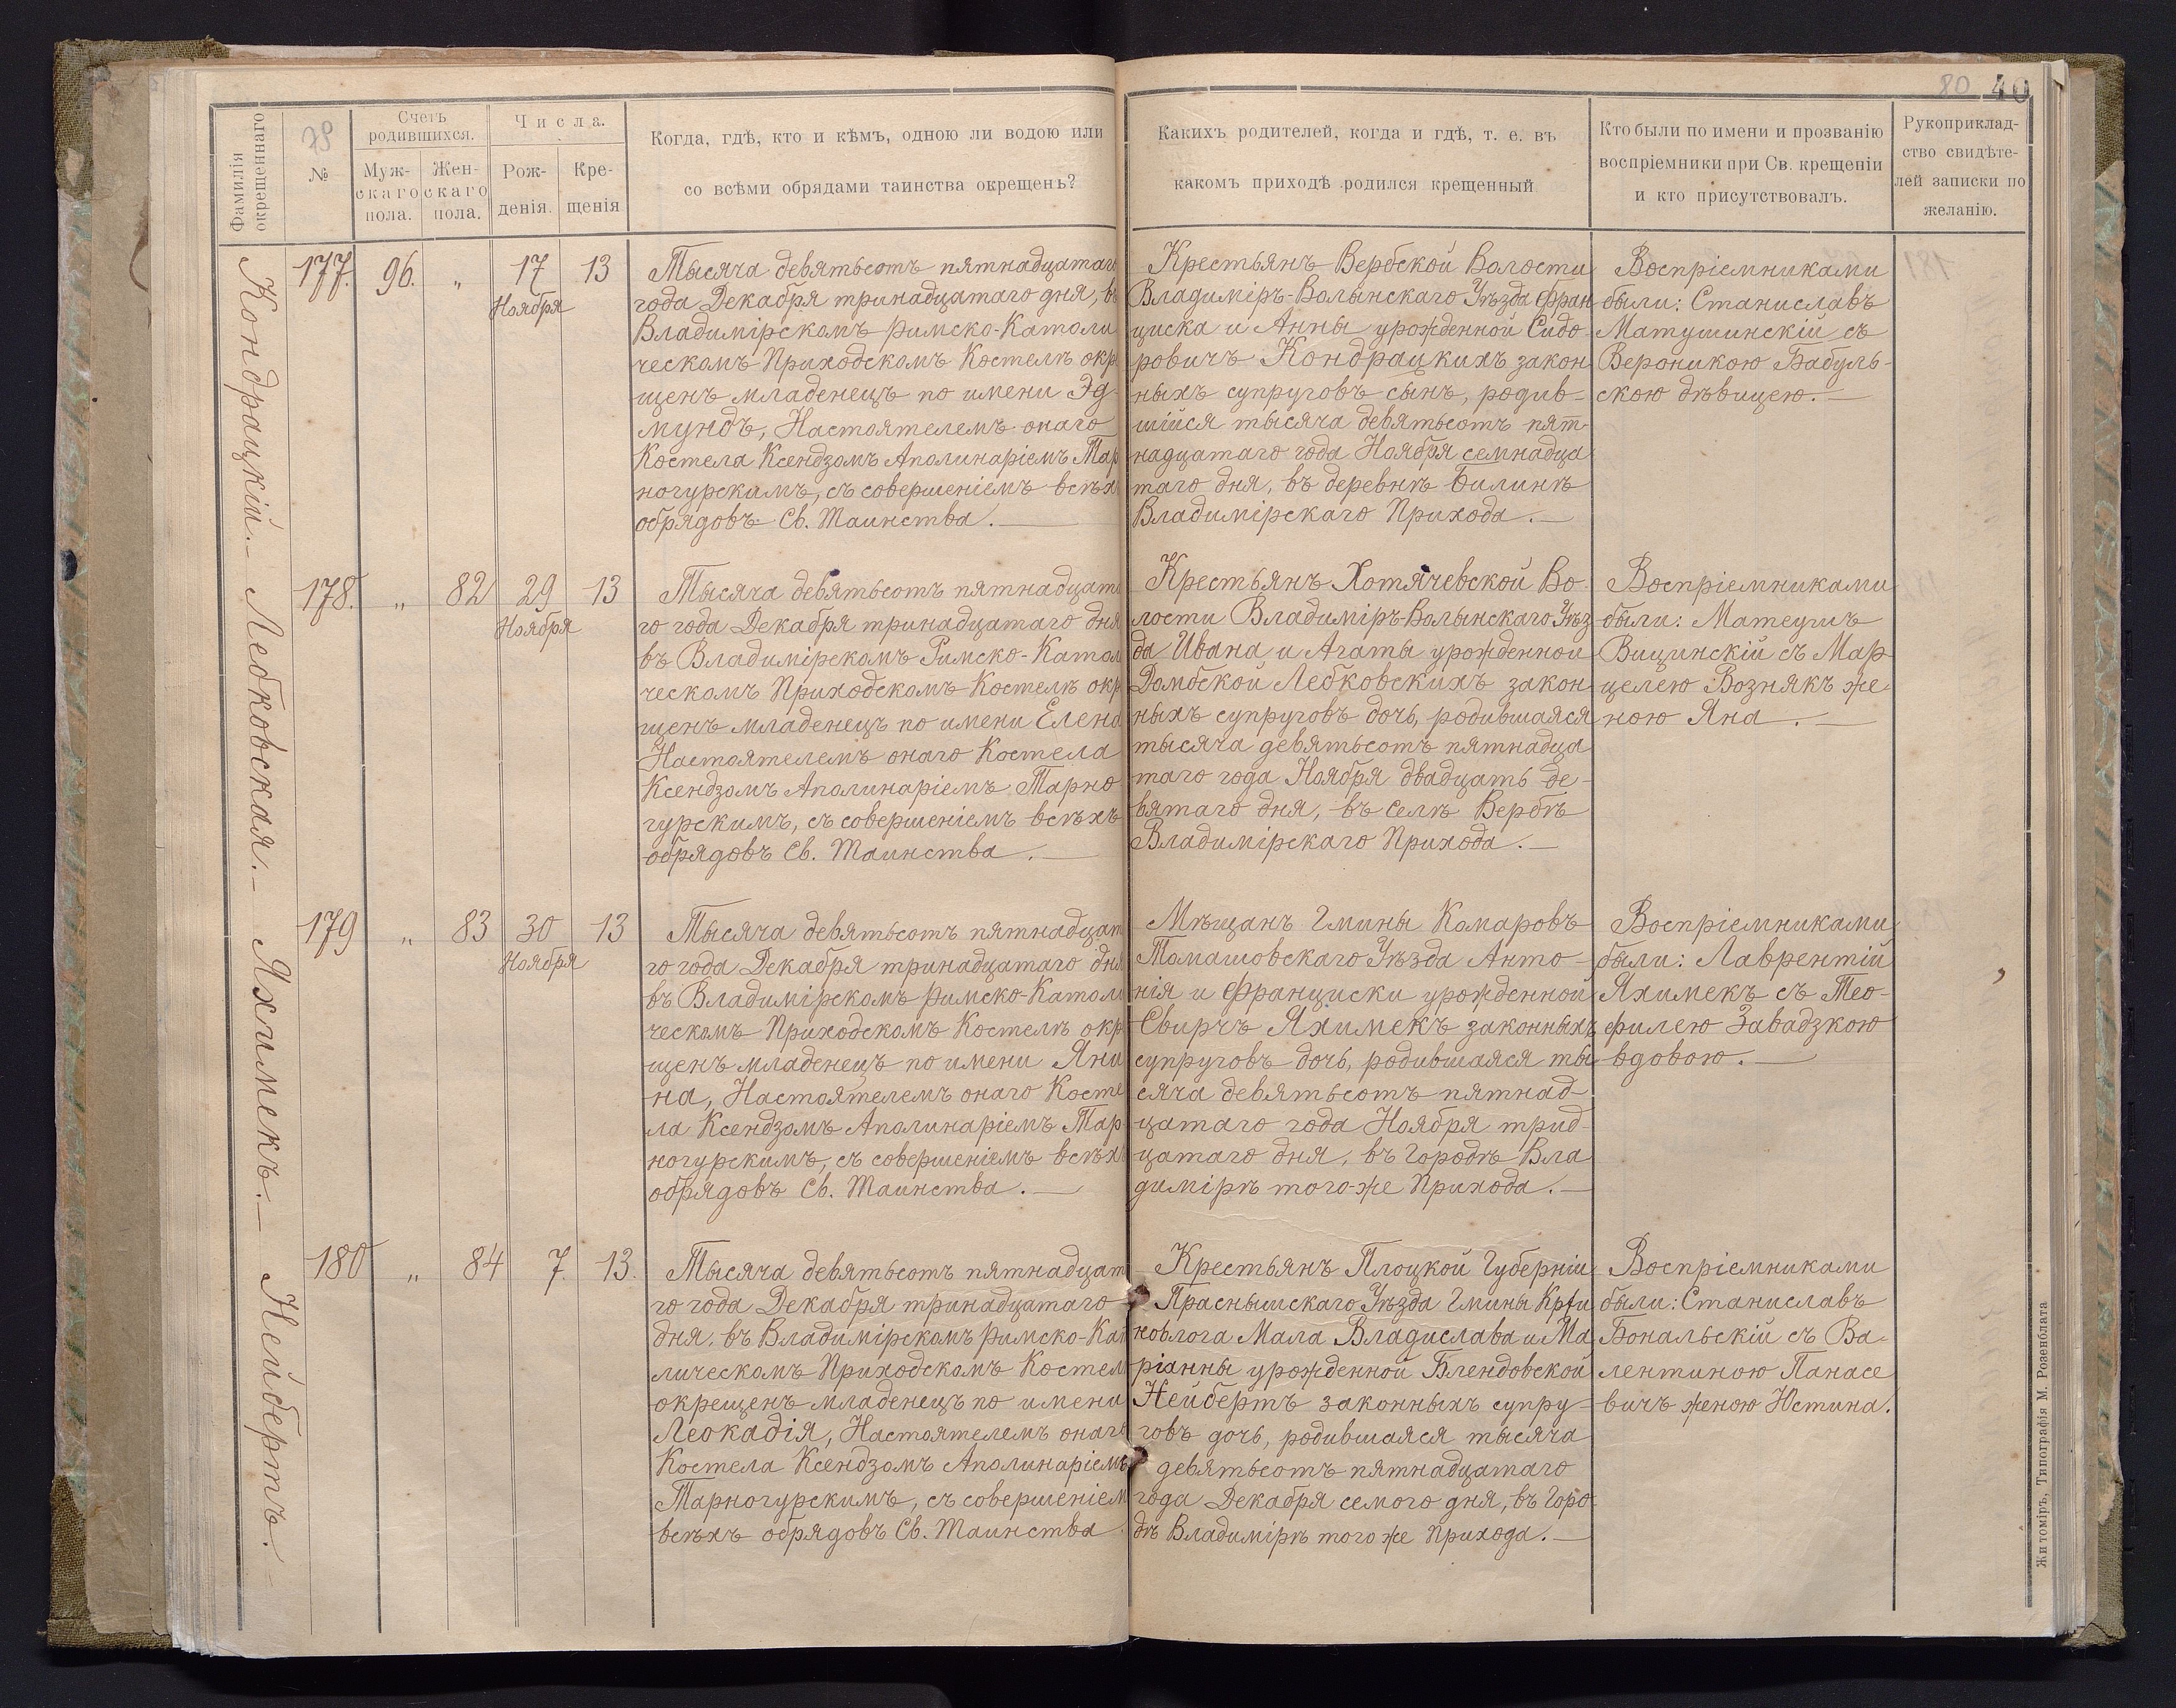 80 40
Фамилія окрещеннаго
79
№
Счетъ родившихся.
Муж-скаго пола.
Жен-скаго пола.
Числа.
Рож-денія.
Кре-щенія
Когда, гдѣ, кто и кѣмъ, одною ли водою или
со всѣми обрядами таинства окрещенъ?
Какихъ родителей, когда и гдѣ, т. е. въ
какомъ приходѣ родился крещенный
Кто были по имени и прозванію
воспріемники при Св. крещеніи
и кто присутствовалъ.
Рукоприклад-
ство свидѣте-
лей записки по
желанію.
Кондрацкій.-
177. 96. „ 17 13
Ноября
Тысяча девятьсотъ пятнадцатаго
года Декабря тринадцатаго дня, въ
Владимірскомъ Римско-Католи
ческомъ Приходскомъ Костелѣ окр
щенъ младенецъ по имени Эд-
мундъ, Настоятелемъ онаго
Костела Ксендзомъ Аполинаріемъ Тар
ногурскимъ, съ совершеніемъ всѣхъ
обрядовъ Св. Таинства.
Крестьянъ Вербской Волости
Владиміръ-Волынскаго Уѣзда Фран
циска и Анны урожденной Сидо-
ровичъ Кондрацкихъ закон
ныхъ супруговъ сынъ, родив-
шійся тысяча девятьсотъ пят-
надцатаго года Ноября семнадца
таго дня, въ деревнѣ Билинѣ
Владимірскаго Прихода.
Воспріемниками
были: Станиславъ
Матушинскій съ
Вероникою Бабуль-
скою дѣвицею.
Лебковская.-
178. „ 82 29 13
Ноября
Тысяча девятьсотъ пятнадцата
го года Декабря тринадцатаго дня
въ Владимірскомъ Римско-Катол
ческомъ Приходскомъ Костелѣ окр
щенъ младенецъ по имени Елена
Настоятелемъ онаго Костела
Ксендзомъ Аполинаріемъ Тарно
гурскимъ, съ совершеніемъ всѣхъ
обрядовъ Св. Таинства.
Крестьянъ Хотячевской Во-
лости Владиміръ-Волынскаго Уѣз
да Ивана и Агаты урожденной
Домбской Лебковскихъ закон
ныхъ супруговъ дочь, родившаяся
тысяча девятьсотъ пятнадца
таго года Ноября двадцать де-
вятаго дня, въ селѣ Вербѣ
Владимірскаго Прихода.
Воспріемниками
были: Матеушъ
Вицинскій съ Мар
целею Вознякъ же-
ною Яна.
Яхимекъ.
179 „ 83 30 13
Ноября
Тысяча девятьсотъ пятнадцат
го года Декабря тринадцатаго дня
въ Владимірскомъ Римско-Католи
ческомъ Приходскомъ Костелѣ окр
щенъ младенецъ по имени Яни
на, Настоятелемъ онаго Косте
ла Ксендзомъ Аполинаріемъ Тар
ногурскимъ, съ совершеніемъ всѣхъ
обрядовъ Св. Таинства.
Мѣщанъ Гмины Комаровъ
Томашовскаго Уѣзда Анто-
нія и Франциски урожденной
Свирчъ Яхимекъ законныхъ
супруговъ дочь, родившаяся ты
сяча девятьсотъ пятнад-
цатаго года Ноября трид-
цатаго дня, въ Городѣ Вла
димірѣ того-же Прихода.
Воспріемниками
были: Лаврентій
Яхимекъ съ Тео-
филею Завадзкою
вдовою.
Нейбертъ.
180 „ 84 7. 13.
Тысяча девятьсотъ пятнадцат
го года Декабря тринадцатаго
дня, въ Владимірскомъ Римско-Кат
лическомъ Приходскомъ Костел
окрещенъ младенецъ по имени
Леокадія, Настоятелемъ онаго
Костела Ксендзомъ Аполинаріемъ
Тарногурскимъ, съ совершеніем
всѣхъ обрядовъ Св. Таинства.
Крестьянъ Плоцкой Губерніи
Праснышскаго Уѣзда Гмины
Мала Владислава и Ма
ріанны урожденной Блендовской
Нейбертъ законныхъ супру-
говъ дочь, родившаяся тысяча
девятьсотъ пятнадцатаго
года Декабря семого дня, въ Горо-
дѣ Владимірѣ того же Прихода.
Воспріемниками
были: Станиславъ
Бональскій съ Ва-
лентиною Панасе
вичъ женою Юстина.
Житоміръ, Типографія М. Розенблата